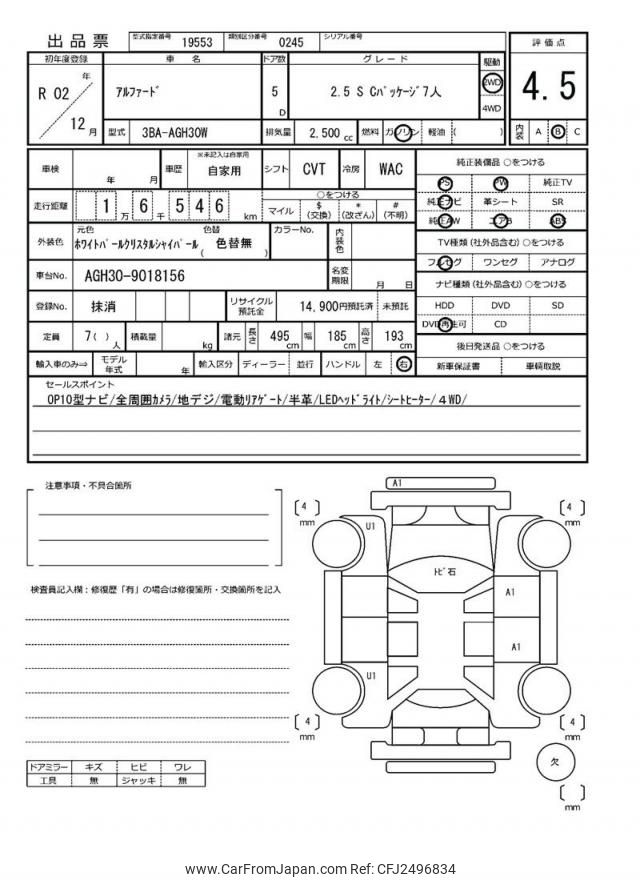 出品票 型式指定番号 19553 類別区分番号 0245 シリアル番号
初年度登録 車 名 ドア数 グレード 駆動 評価点
R 02 年 12 月 アルファード 5 D 2.5 S Cパッケージ7人 2WD 4WD 4.5
型式 3BA-AGH30W 排気量 2,500 cc 燃料 ガソリン 軽油 ( ) 内装 A B C
車検 年 月 車歴 ※未記入は自家用 自家用 シフト CVT 冷房 WAC 純正装備品 ○をつける
PS PW 純正TV
走行距離 1 万 6 千 5 4 6 km ○をつける 純正ナビ 革シート SR
マイル $ (交換) * (改ざん) # (不明) 純正AW エアB ABS
外装色 元色 ホワイトパールクリスタルシャイパール 色替 ( 色替無 ) カラーNo. 内装色 TV種類 (社外品含む) ○をつける
フルセグ ワンセグ アナログ
車台No. AGH30-9018156 名変期限 月 日 ナビ種類 (社外品含む) ○をつける
登録No. 抹消 リサイクル預託金 14,900円預託済 未預託 HDD DVD SD
DVD再生可 CD
定員 7( ) 人 積載量 kg 諸元 長さ 495 cm 幅 185 cm 高さ 193 cm 後日発送品 ○をつける
輸入車のみ⇒ モデル年式 年 輸入区分 ディーラー 並行 ハンドル 左 右 新車保証書 車輌取説
セールスポイント
OP10型ナビ/全周囲カメラ/地デジ/電動リアゲート/半革/LEDヘッドライト/シートヒーター/4WD/
注意事項・不具合箇所
検査員記入欄：修復歴「有」の場合は修復箇所・交換箇所を記入
A1
4 mm
4 mm
U1
トビ石
A1
A1
U1
4 mm
4 mm
欠
mm
ドアミラー キズ ヒビ ワレ
工具 無 ジャッキ 無
www.CarFromJapan.com Ref: CFJ2496834